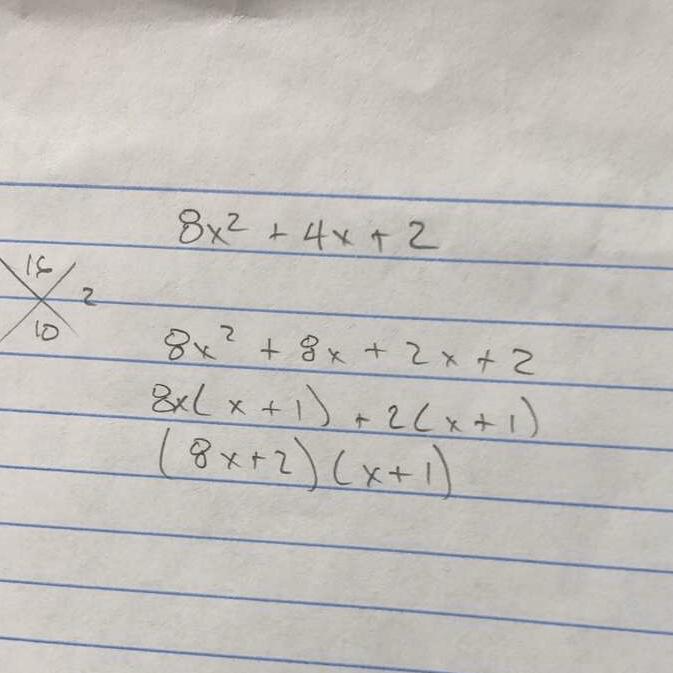 8x² + 4x + 2
16
2
10
8x² + 8x + 2x + 2
8x(x + 1) + 2(x + 1)
(8x+2)(x+1)